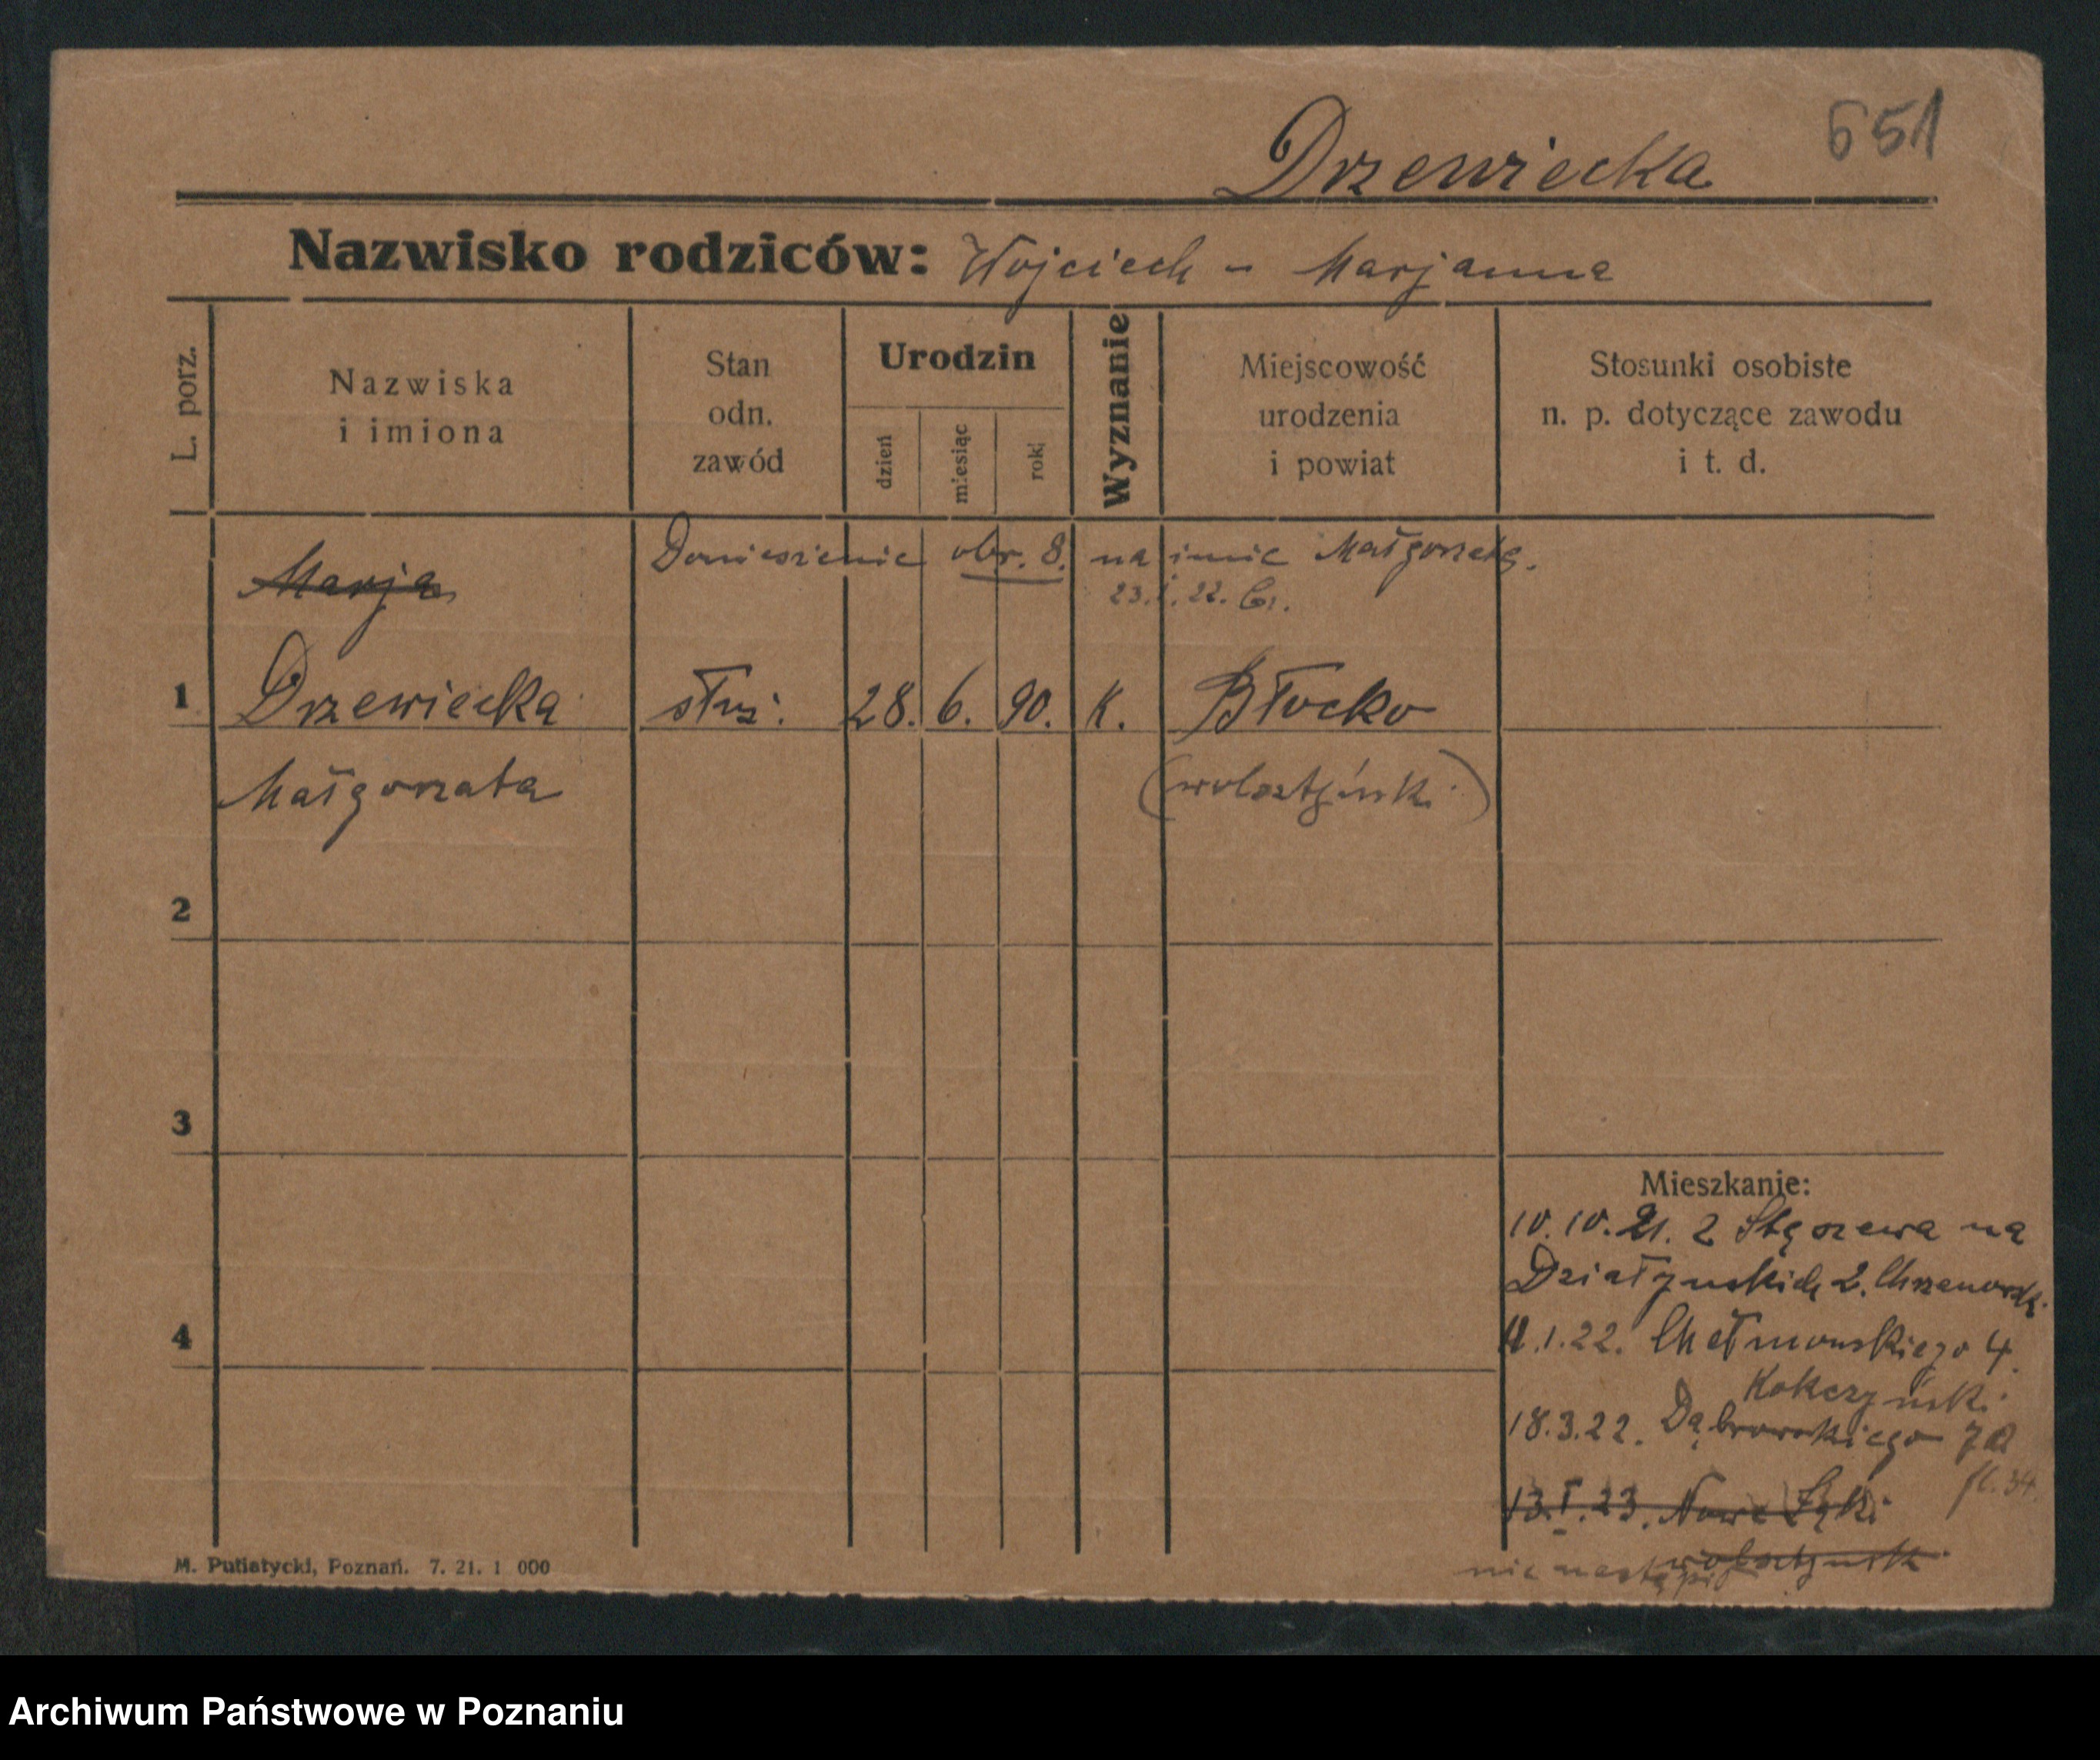 651
Drzewiecka
Nazwisko rodziców: Wojciech - Marjanna
L. porz.
Nazwiska
i imiona
Stan
odn.
zawód
Urodzin
dzień
miesiąc
rok
Wyznanie
Miejscowość
urodzenia
i powiat
Stosunki osobiste
n. p. dotyczące zawodu
i t. d.
Doniesienie obr. 8. na imie Małgorzatę.
23.I.22.
Marja
1 Drzewiecka służ. 28. 6. 90. K. Błocko
Małgorzata (wolsztyński)
2
3
Mieszkanie:
10.10.21. z Stęszewa na
Działyńskich 2. Chrzanowski
4
11.1.22. Chełmońskiego 4.
Kokczyński
18.3.22. Dąbrowskiego 7
fl. 34.
13.I.23. Nowe Łąki
wolsztyńsk
nie nastąpił
M. Putiatycki, Poznań. 7. 21. 1 000
Archiwum Państwowe w Poznaniu